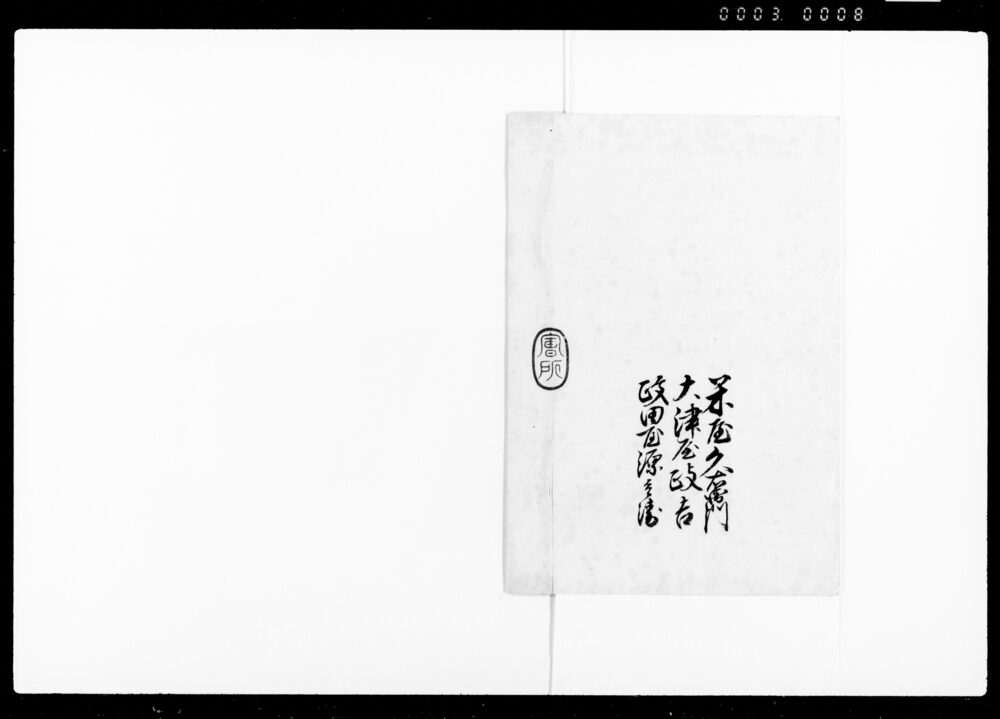 0003 0008
米屋久右衛門
大津屋政吉
政田屋源兵衛